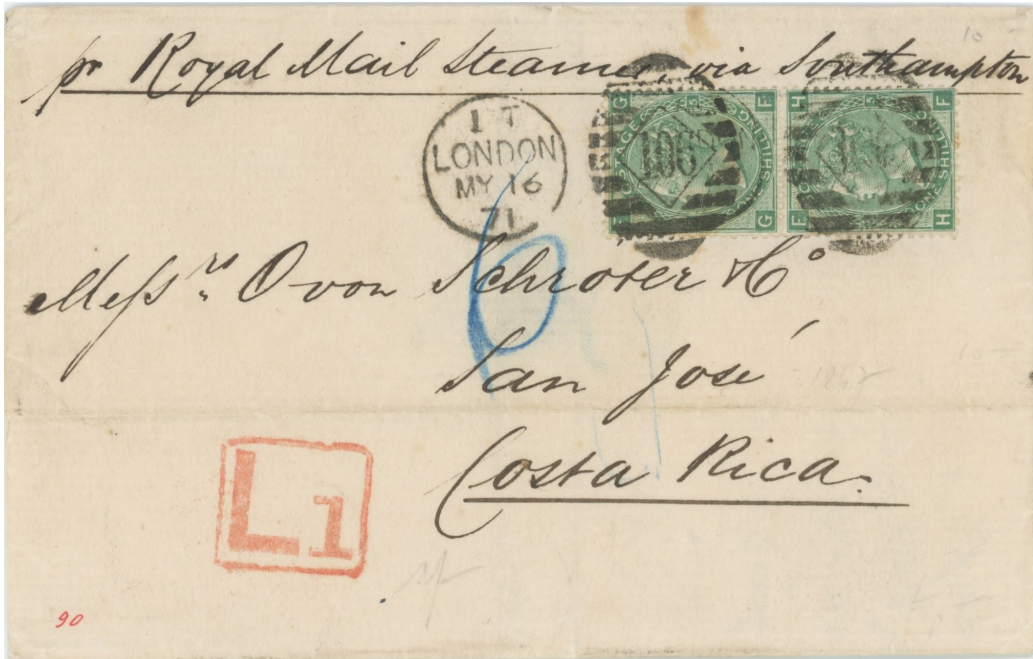 pr Royal Mail Steamer, via Southampton
1 T
LONDON
MY 16
71
106
POSTAGE
ONE SHILLING
G E
5
F G
H F
5
F H
ONE SHILLING
Messrs. O von Schroter & Co
San José
Costa Rica.
L1
90
6
10
10
1867